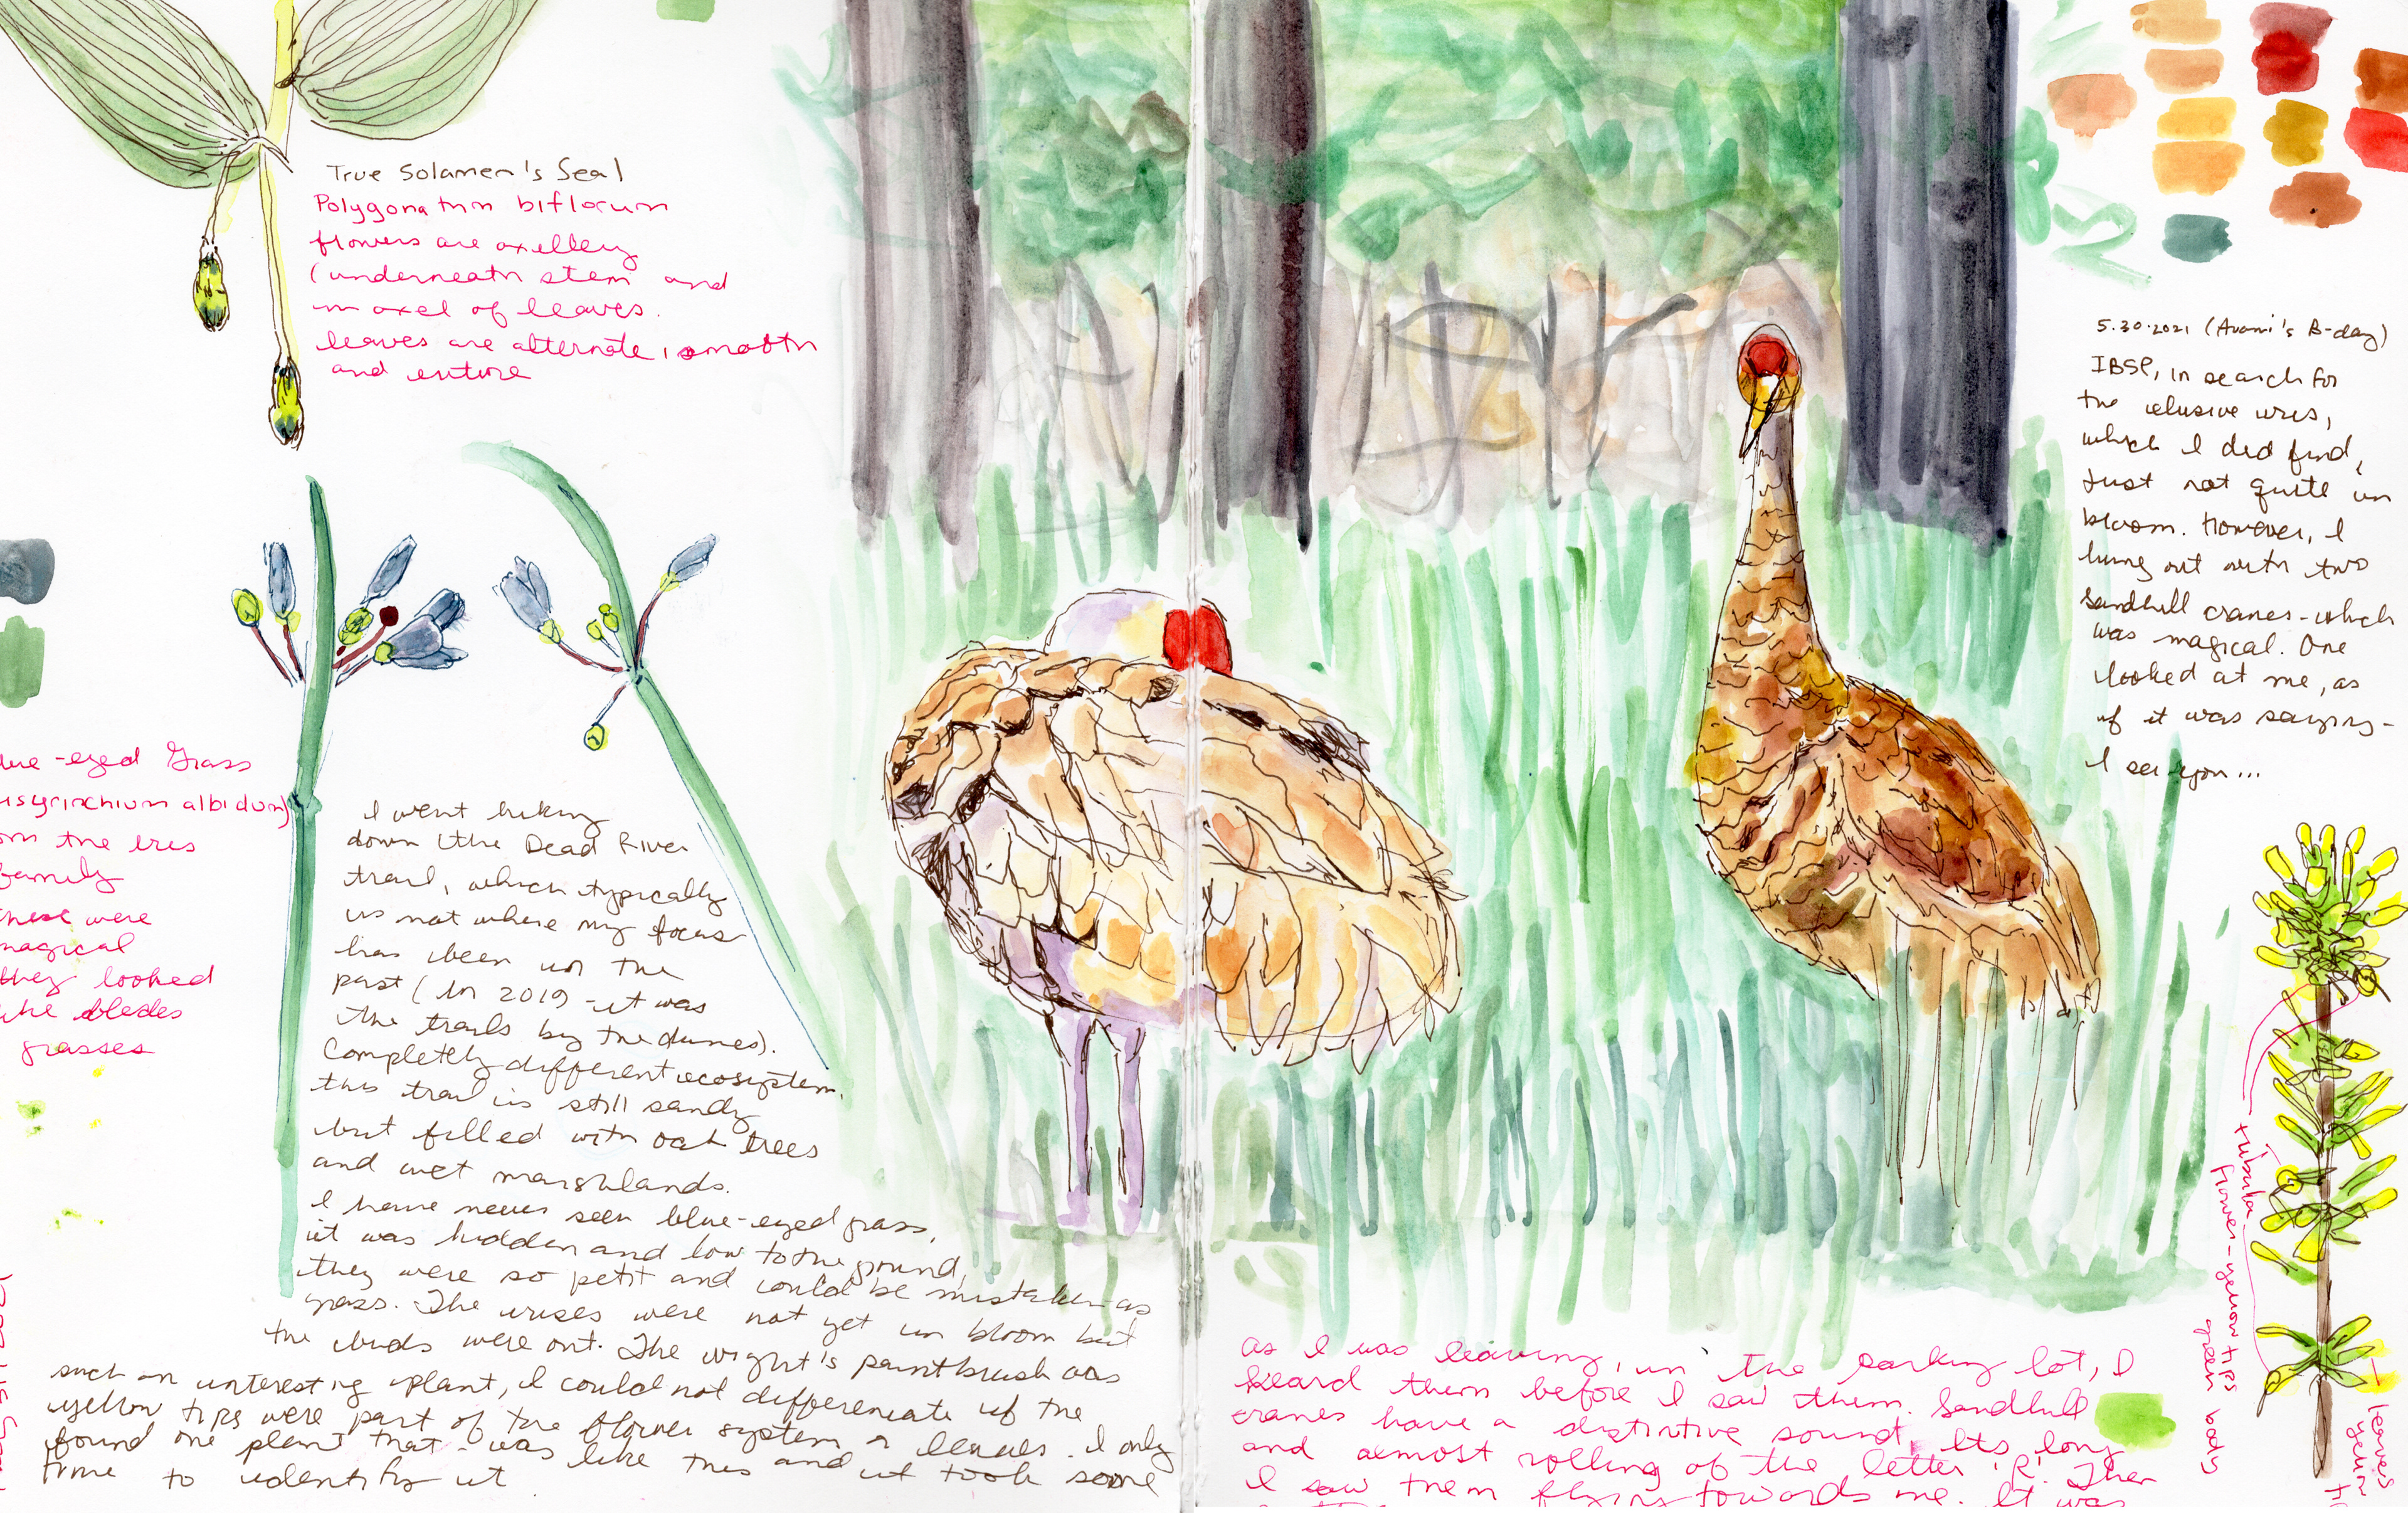 True Solamen's Seal
Polygonatum biflorum
flowers are axellery
(underneath stem and
in axel of leaves.
leaves are alternate, smooth
and entire
ue-eyed Grass
isyrinchium albidum)
om the iris
family
these were
magical
they looked
like blades
grasses
I went hiking
down (the Dead River
trail, which typically
is not where my focus
has been in the
past (in 2019 - it was
the trails by the dunes).
Completely different ecosystem.
this trail is still sandy
but filled with oak trees
and wet marshlands.
I have never seen blue-eyed grass,
it was hidden and low to the ground,
they were so petit and could be mistaken as
grass. The irises were not yet in bloom but
the buds were out. The wight's paintbrush was
such an interesting plant, I could not differenciate if the
yellow tips were part of the flower system or leaves. I only
found one plant that was like this and it took some
time to identify it
5.30.2021 (Avani's B-day)
IBSP, in search for
the elusive iris,
which I did find,
just not quite in
bloom. However, I
hung out with two
Sandhill cranes - which
was magical. One
looked at me, as
if it was saying -
I see you...
tubular
flower - yellow tips
green body
leaves
yellow
As I was leaving, in the parking lot, I
heard them before I saw them. Sandhill
cranes have a distintive sound. Its long
and almost rolling of the letter 'R'. Then
I saw them flying towards me. It was